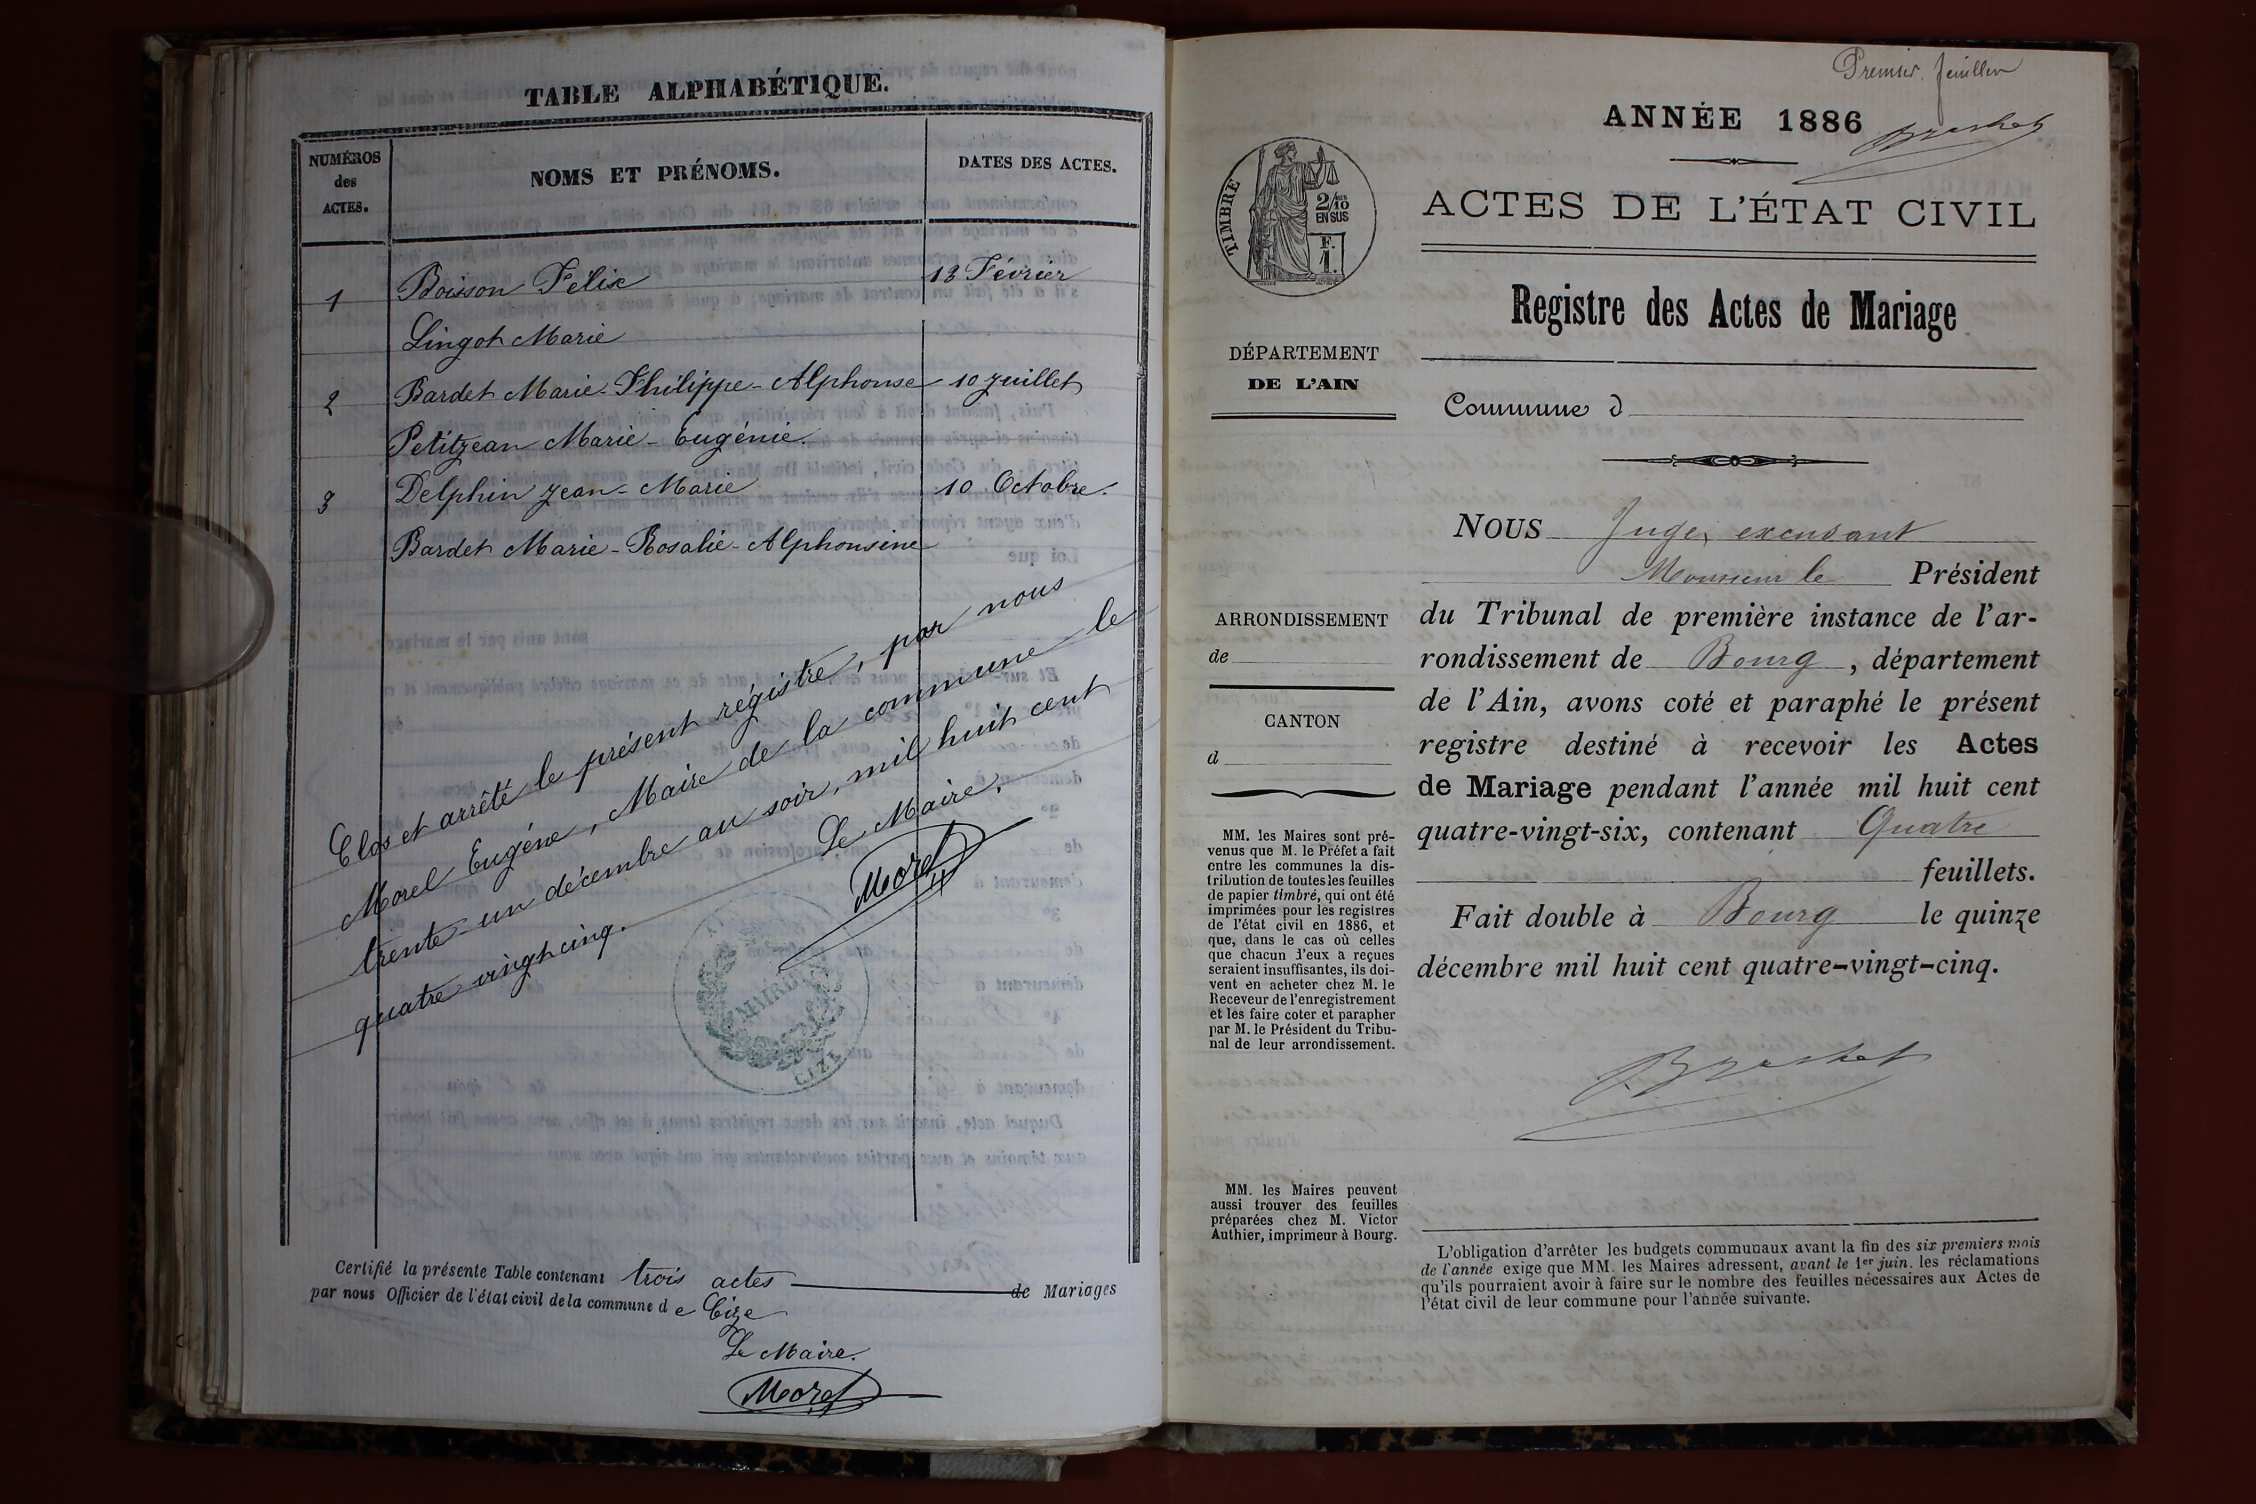 TABLE ALPHABÉTIQUE.
NUMÉROS
des
ACTES.
NOMS ET PRÉNOMS.
DATES DES ACTES.
1 Boisson Félix 13 Février
Lingot Marie
2 Bardet Marie-Philippe-Alphonse 10 juillet
Petitjean Marie-Eugénie.
3 Delphin Jean-Marie 10 Octobre.
Bardet Marie-Rosalie-Alphonsine
Clos et arrêté le présent régistre, par nous
Morel Eugène, Maire de la commune le
trente-un décembre au soir, mil huit cent
quatre vingt cinq.
Le Maire,
Morel
MAIRIE
CIZE
Certifié la présente Table contenant trois actes de Mariages
par nous Officier de l'état civil de la commune de Cize
Le Maire.
Morel
Premier feuillet
ANNÉE 1886
ACTES DE L'ÉTAT CIVIL
TIMBRE
2/10
EN SUS
F.
1.
Registre des Actes de Mariage
DÉPARTEMENT
DE L'AIN
Commune d
NOUS Juge, excusant
Monsieur le Président
du Tribunal de première instance de l'ar-
rondissement de Bourg, département
de l'Ain, avons coté et paraphé le présent
registre destiné à recevoir les Actes
de Mariage pendant l'année mil huit cent
quatre-vingt-six, contenant Quatre
feuillets.
Fait double à Bourg le quinze
décembre mil huit cent quatre-vingt-cinq.
ARRONDISSEMENT
de
CANTON
d
MM. les Maires sont pré-
venus que M. le Préfet a fait
entre les communes la dis-
tribution de toutes les feuilles
de papier timbré, qui ont été
imprimées pour les registres
de l'état civil en 1886, et
que, dans le cas où celles
que chacun d'eux a reçues
seraient insuffisantes, ils doi-
vent en acheter chez M. le
Receveur de l'enregistrement
et les faire coter et parapher
par M. le Président du Tribu-
nal de leur arrondissement.
MM. les Maires peuvent
aussi trouver des feuilles
préparées chez M. Victor
Authier, imprimeur à Bourg.
L'obligation d'arrêter les budgets communaux avant la fin des six premiers mois
de l'année exige que MM. les Maires adressent, avant le 1er juin, les réclamations
qu'ils pourraient avoir à faire sur le nombre des feuilles nécessaires aux Actes de
l'état civil de leur commune pour l'année suivante.